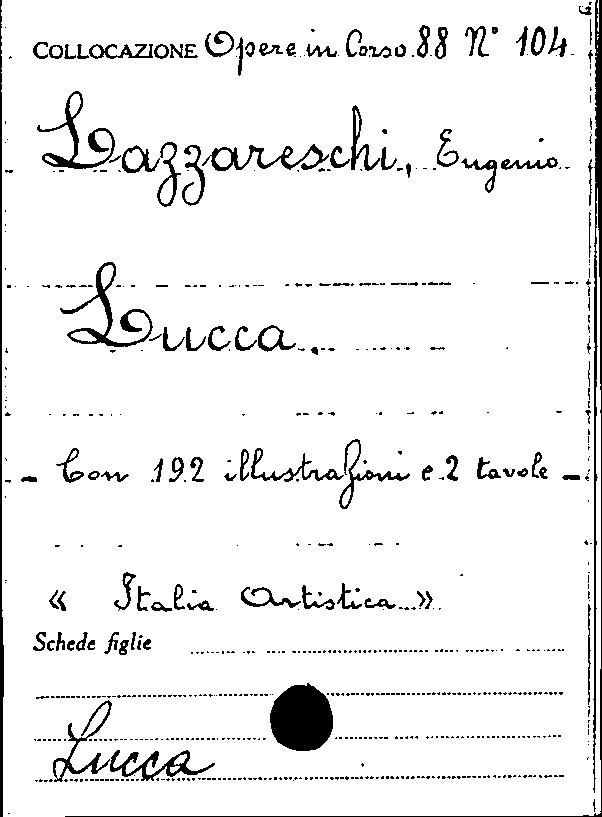 COLLOCAZIONE Opere in Corso 88 N° 104
Lazzareschi, Eugenio
Lucca.
- Con 192 illustrazioni e 2 tavole -
« Italia Artistica »
Schede figlie
Lucca